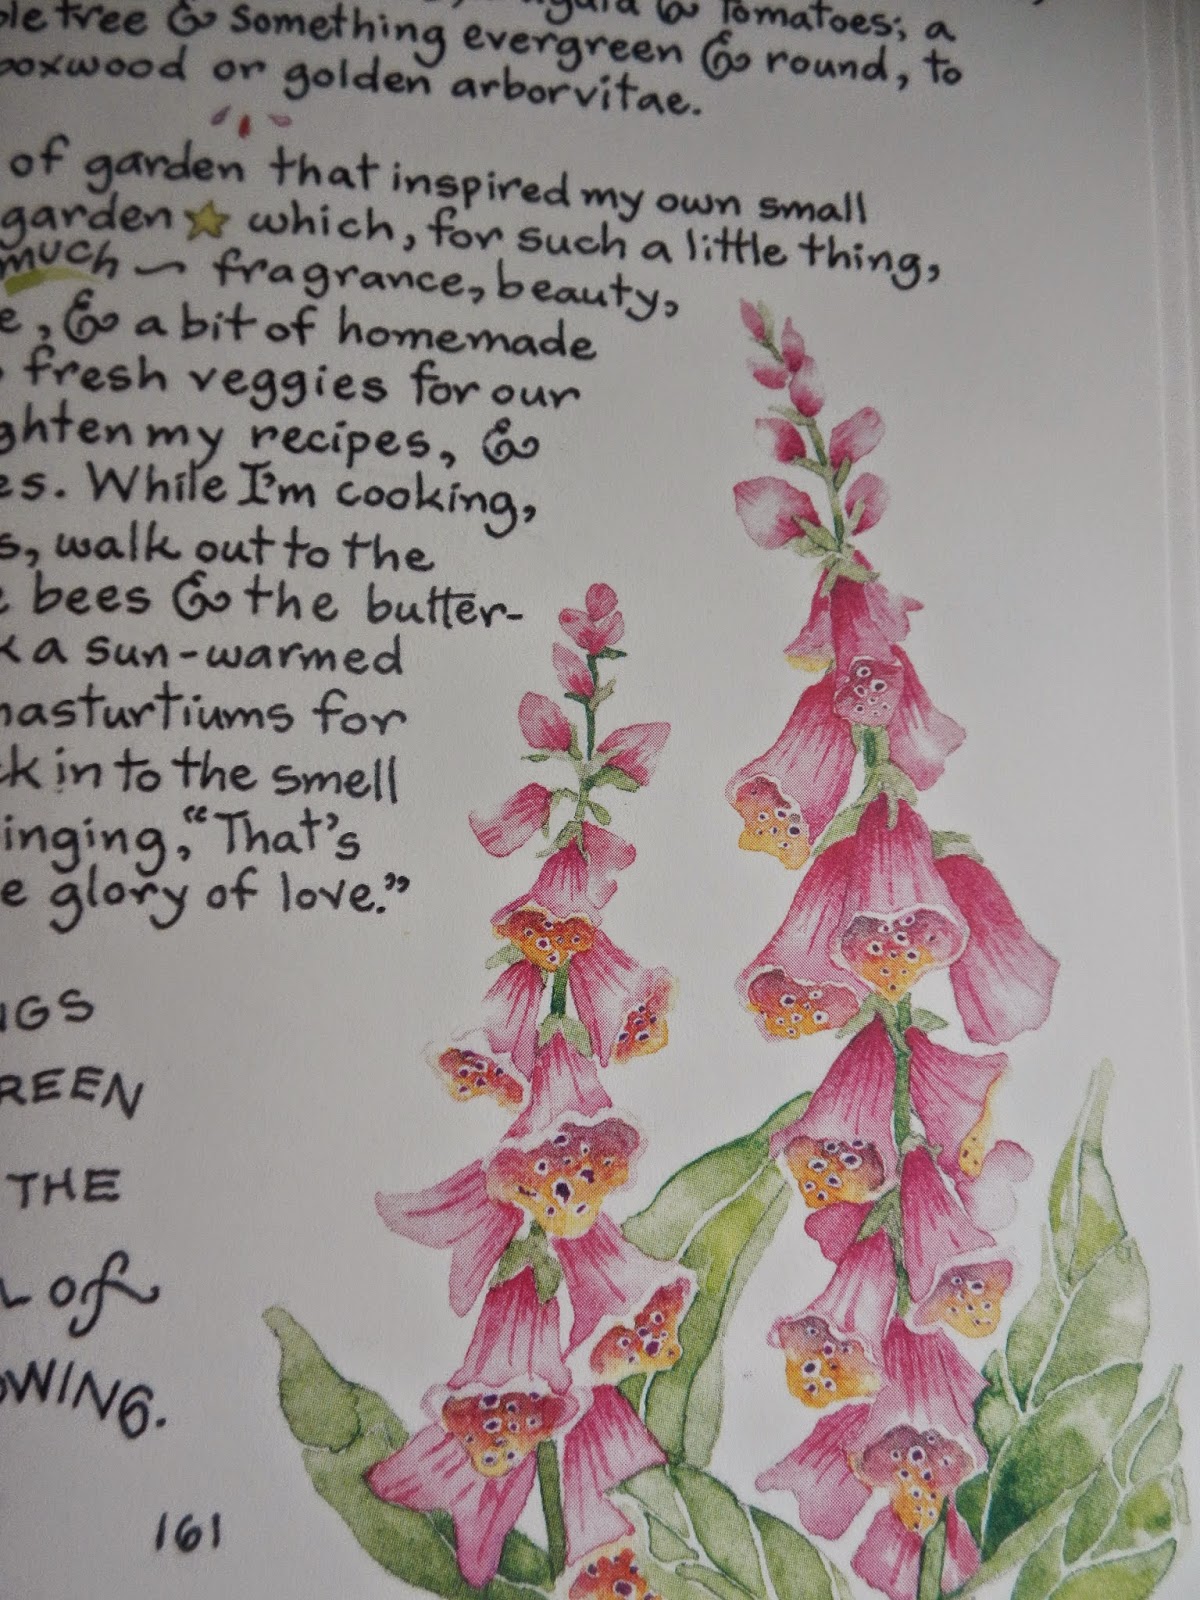 tree & something evergreen & Tomatoes; a
round, to
boxwood or golden arborvitae.
of garden that inspired my own small
garden which, for such a little thing,
much — fragrance, beauty,
& a bit of homemade
fresh veggies for our
my recipes, &
While I'm cooking,
walk out to the
bees & the butter-
a sun-warmed
nasturtiums for
in to the smell
"That's
glory of love."
REEN
THE
of
161